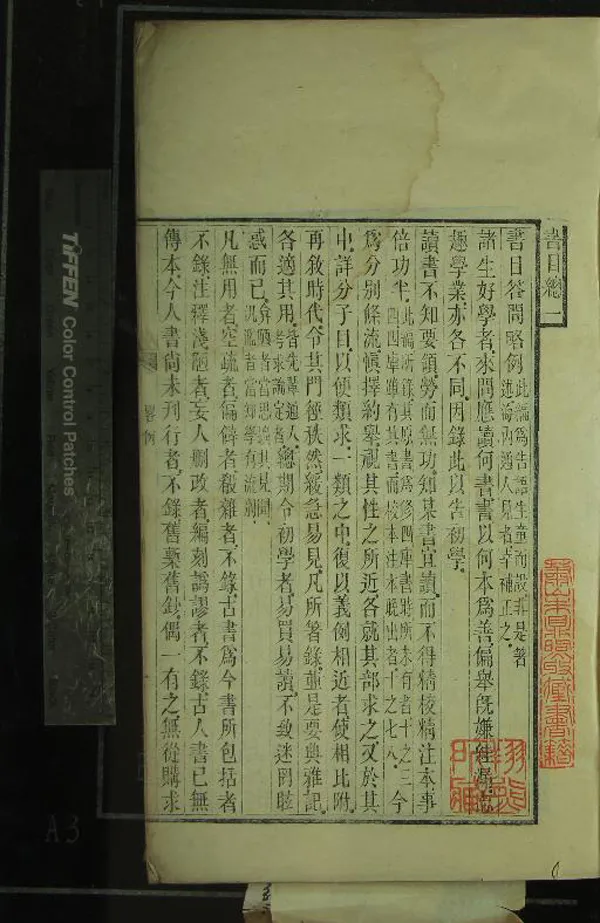 書目總一
書目答問略例此編爲告語生童而設非是著述海內通人見者幸補正之
諸生好學者來問應讀何書書以何本爲善偏舉旣嫌絓漏志
趣學業亦各不同因錄此以告初學
讀書不知要領勞而無功知某書宜讀而不得精校精注本事
倍功半此編所錄其原書爲修四庫書時所未有者十之三四四庫雖有其書而校本注本晚出者十之七八今
爲分別條流愼擇約舉視其性之所近各就其部求之又於其
中詳分子目以便類求一類之中復以義例相近者使相比附
再敘時代令其門徑秩然緩急易見凡所著錄並是要典雅記
各適其用皆先輩通人考求論定者總期令初學者易買易讀不致迷罔眩
惑而已弇陋者當思擴其見聞汎濫者當知學有流別
凡無用者空疏者偏僻者殽雜者不錄古書爲今書所包括者
不錄注釋淺陋者妄人刪改者編刻譌謬者不錄古人書已無
傳本今人書尚未刊行者不錄舊槧舊鈔偶一有之無從購求
畧例
蕭山朱鼎煦收藏書籍
TIFFEN Color Control Patches
A3